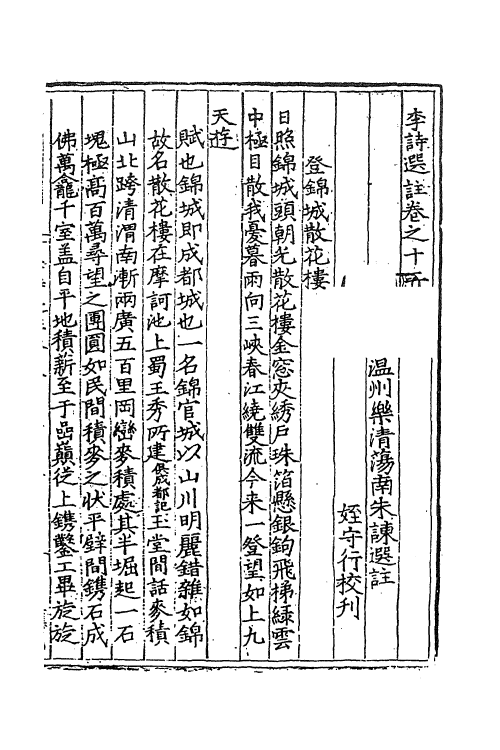 李詩選註卷之十二
温州樂清蕩南朱諫選註
姪守行校刋
登錦城散花樓
日照錦城頭朝光散花樓金窓夾綉戶珠箔懸銀鉤飛梯綠雲
中極目散我憂暮雨向三峽春江繞雙流今来一登望如上九
天遊
賦也錦城即成都城也一名錦官城以山川明麗錯雜如錦
故名散花樓在摩訶池上蜀王秀所建俱成都記玉堂間話麥積
山北跨清渭南漸兩廣五百里岡巒麥積處其半堀起一石
塊極髙百萬尋望之團圓如民間積麥之狀平壁間鐫石成
佛萬龕千室盖自平地積薪至于嵒巔從上鐫鑿工畢旋旋